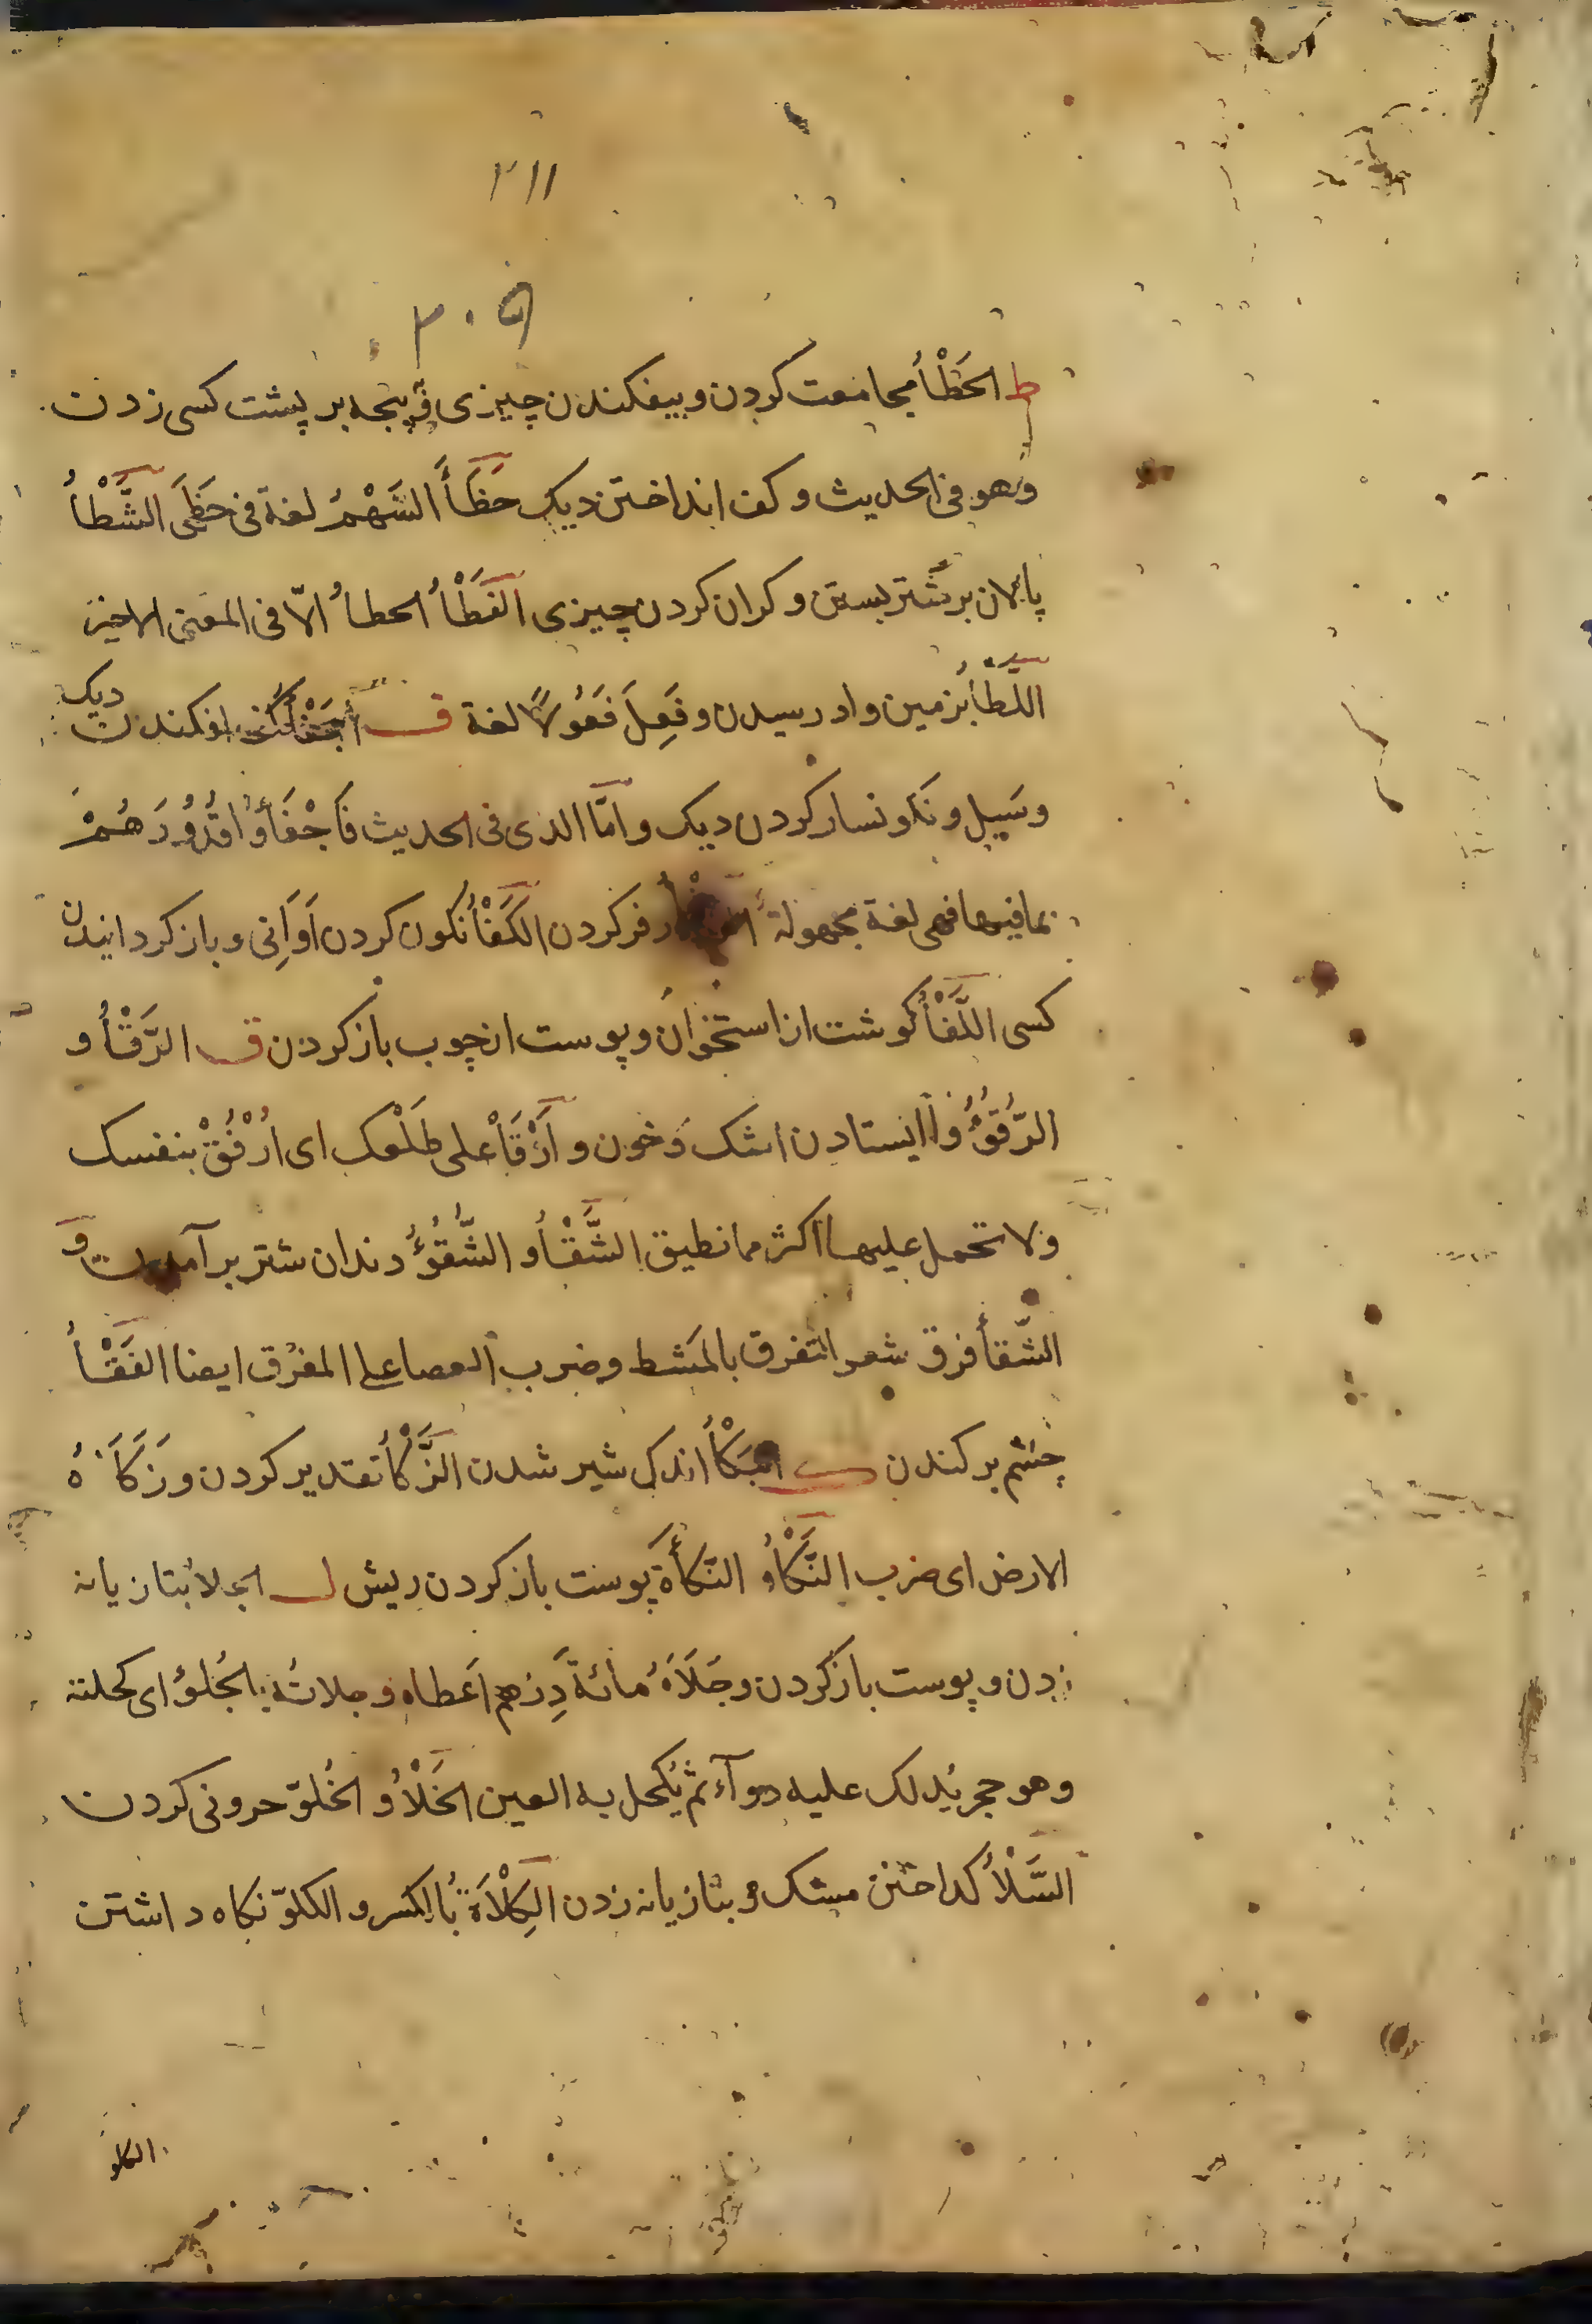 ٣١١
٣٠٥
ط الحَطْأُ مجامعت کردن و بیفکندن چیزی و پنجه بر پشت کسی زدن
وهو فی الحدیث و کف انداختن دیک حَظَأَ السَهْمُ لغة فی حَظِیَ الشَّطْأُ
پالان بر شتر بستن و کران کردن چیزی الفَطْأُ الحطأُ الّا فی المعنی الاخیر
اللَّطأُ بزمین وادرسیدن و فَعِلَ فَعُولًا لغة ف افکندن دیک
و سَیل و نکونسار کردن دیک و امّا الذی فی الحدیث فَاَجْفَأُوْا قُدُوْرَهُمْ
بما فیها فهی لغة مجهولة رفو کردن الکَفْأُ نکون کردن اَوَانِی و باز کردانیدن
کسی اللَّفْأُ کوشت از استخوان و پوست از چوب باز کردن ق الرَّقْأُ و
الرُّقُوْءُ وا ایستادن اشک و خون و اَرْقَأْ علی ظَلْعِک ای اُرْفُقْ بنفسک
ولا تحمل علیها اکثر مما تطیق الشَّقْأُ و الشُّقُوْءُ دندان شتر بر آمدن و
الشَّقأ فرق شعر المتفرق بالمَشط و ضرب العصا علی المفرق ایضا الفَقْأُ
چشم برکندن ک البَکْأُ اندک شیر شدن الزَّکْأُ نقد یر کردن و زَکَأَ بُهُ
الارض ای ضرب النَّکْأُ و النَّکأَة پوست باز کردن ریش ل الجلأ بتازیانه
زدن و پوست باز کردن و حَلَأَهُ مائة دِرْهم اَعطاه و حلاتُهُ بالحُلُؤ ای کحلته
وهو حجر یُدلک علیه دوآء ثم یُکحل به العین الخَلْأُ و الخُلوّ حرونی کردن
السَّلْأُ کداختن مسک و بتازیانه زدن الکِلْاَةُ بالکسر و الکلوّ نکاه داشتن
الکلو